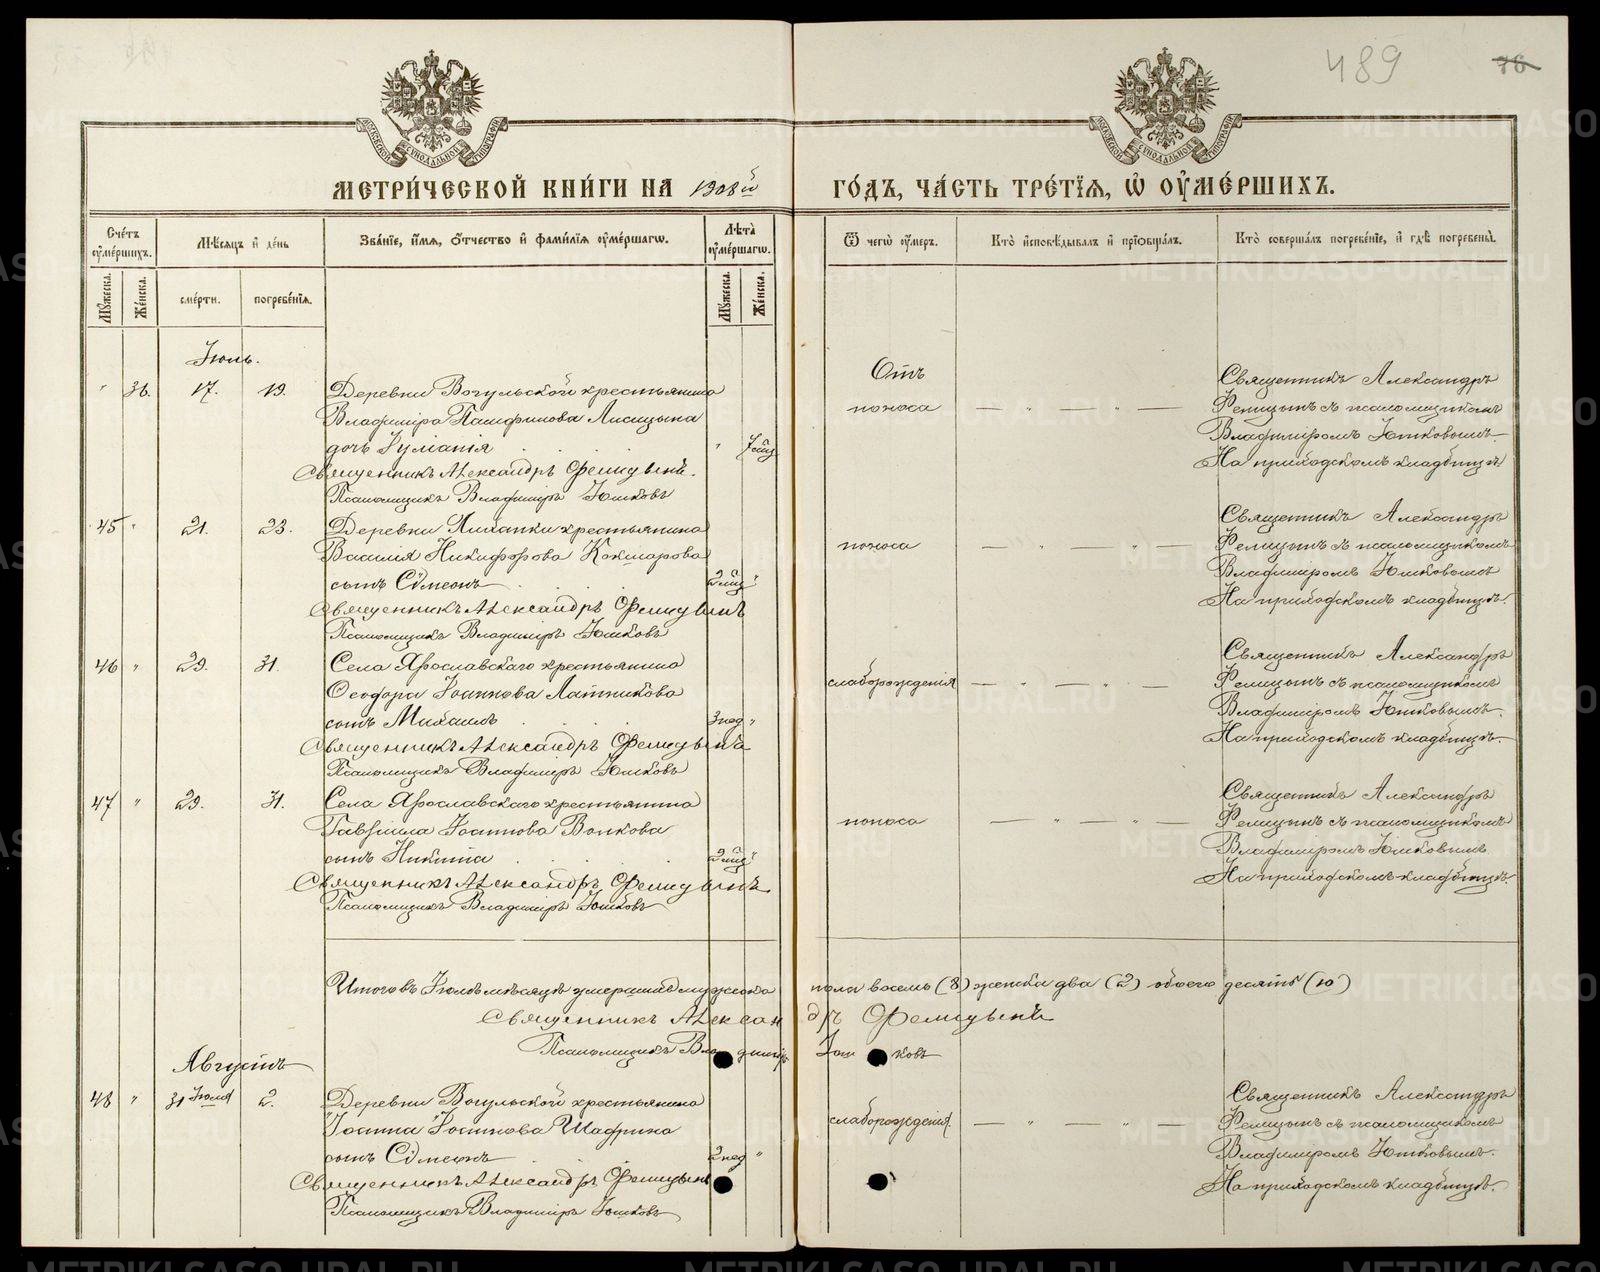 489
76
МОСКОВСКОЙ СѴНОДАЛЬНОЙ ТИПОГРАФІИ
МОСКОВСКОЙ СѴНОДАЛЬНОЙ ТИПОГРАФІИ
МЕТРИ́ЧЕСКОЙ КНИ́ГИ НА 1908й ГО́ДЪ, ЧА́СТЬ ТРЕ́ТІѦ, Ѡ҆ ОУ҆МЕ́РШИХЪ.
Сче́тъ оу҆ме́ршихъ.
Мѣ́сѧцъ и҆ де́нь
Зва́нїе, и҆́мѧ, ѻ҆́тчество и҆ фами́лїѧ оу҆ме́ршагѡ.
Лѣ́та оу҆ме́ршагѡ.
Ѿ чегѡ̀ оу҆́меръ.
Кто̀ и҆сповѣ́дывалъ и҆ прїѻбща́лъ.
Кто̀ соверша́лъ погребе́нїе, и҆ гдѣ̀ погребены̀.
Мꙋ́жеска.
Же́нска.
сме́рти.
погребе́нїѧ.
Мꙋ́жеска.
Же́нска.
Іюль.
" 36. 17. 19. Деревни Вогульской крестьянина
Владиміра Памфилова Лисицына
дочь Іуліанія " 7 мц
Священникъ Александръ Фелицынъ.
Псаломщикъ Владиміръ Юшковъ
Отъ
поноса — " — " —
Священникъ Александръ
Фелицынъ съ псаломщикомъ
Владиміромъ Юшковымъ
На приходскомъ кладбищѣ
45 " 21. 23. Деревни крестьянина
Василія Никифорова Кокшарова
сынъ Сѵмеонъ 2 мц "
Священникъ Александръ Фелицынъ
Псаломщикъ Владиміръ Юшковъ
поноса — " — " —
Священникъ Александръ
Фелицынъ съ псаломщикомъ
Владиміромъ Юшковымъ
На приходскомъ кладбищѣ.
46 " 29. 31. Села Ярославскаго крестьянина
Ѳеодора Іоаннова Латникова
сынъ Михаилъ 3 нед "
Священникъ Александръ Фелицынъ
Псаломщикъ Владиміръ Юшковъ
слаборожденія — " — " —
Священникъ Александръ
Фелицынъ съ псаломщикомъ
Владиміромъ Юшковымъ.
На приходскомъ кладбищѣ.
47 " 29. 31. Села Ярославскаго крестьянина
Гавріила Іоаннова Волкова
сынъ Никита 2 мц "
Священникъ Александръ Фелицынъ
Псаломщикъ Владиміръ Юшковъ
поноса — " — " —
Священникъ Александръ
Фелицынъ съ псаломщикомъ
Владиміромъ Юшковымъ
На приходскомъ кладбищѣ.
Итого въ Іюлѣ мѣсяцѣ умершихъ мужска пола восемь (8) женска два (2) обоего десять (10)
Священникъ Александръ Фелицынъ
Псаломщикъ Владиміръ Юшковъ
Августъ
48 " 31 Іюля 2. Деревни Вогульской крестьянина
Іоанна Іоаннова Шафрика
сынъ Сѵмеонъ 2 нед "
Священникъ Александръ Фелицынъ
Псаломщикъ Владиміръ Юшковъ
слаборожденія — " — " —
Священникъ Александръ
Фелицынъ съ псаломщикомъ
Владиміромъ Юшковымъ.
На приходскомъ кладбищѣ.
METRIKI.GASO-URAL.RU